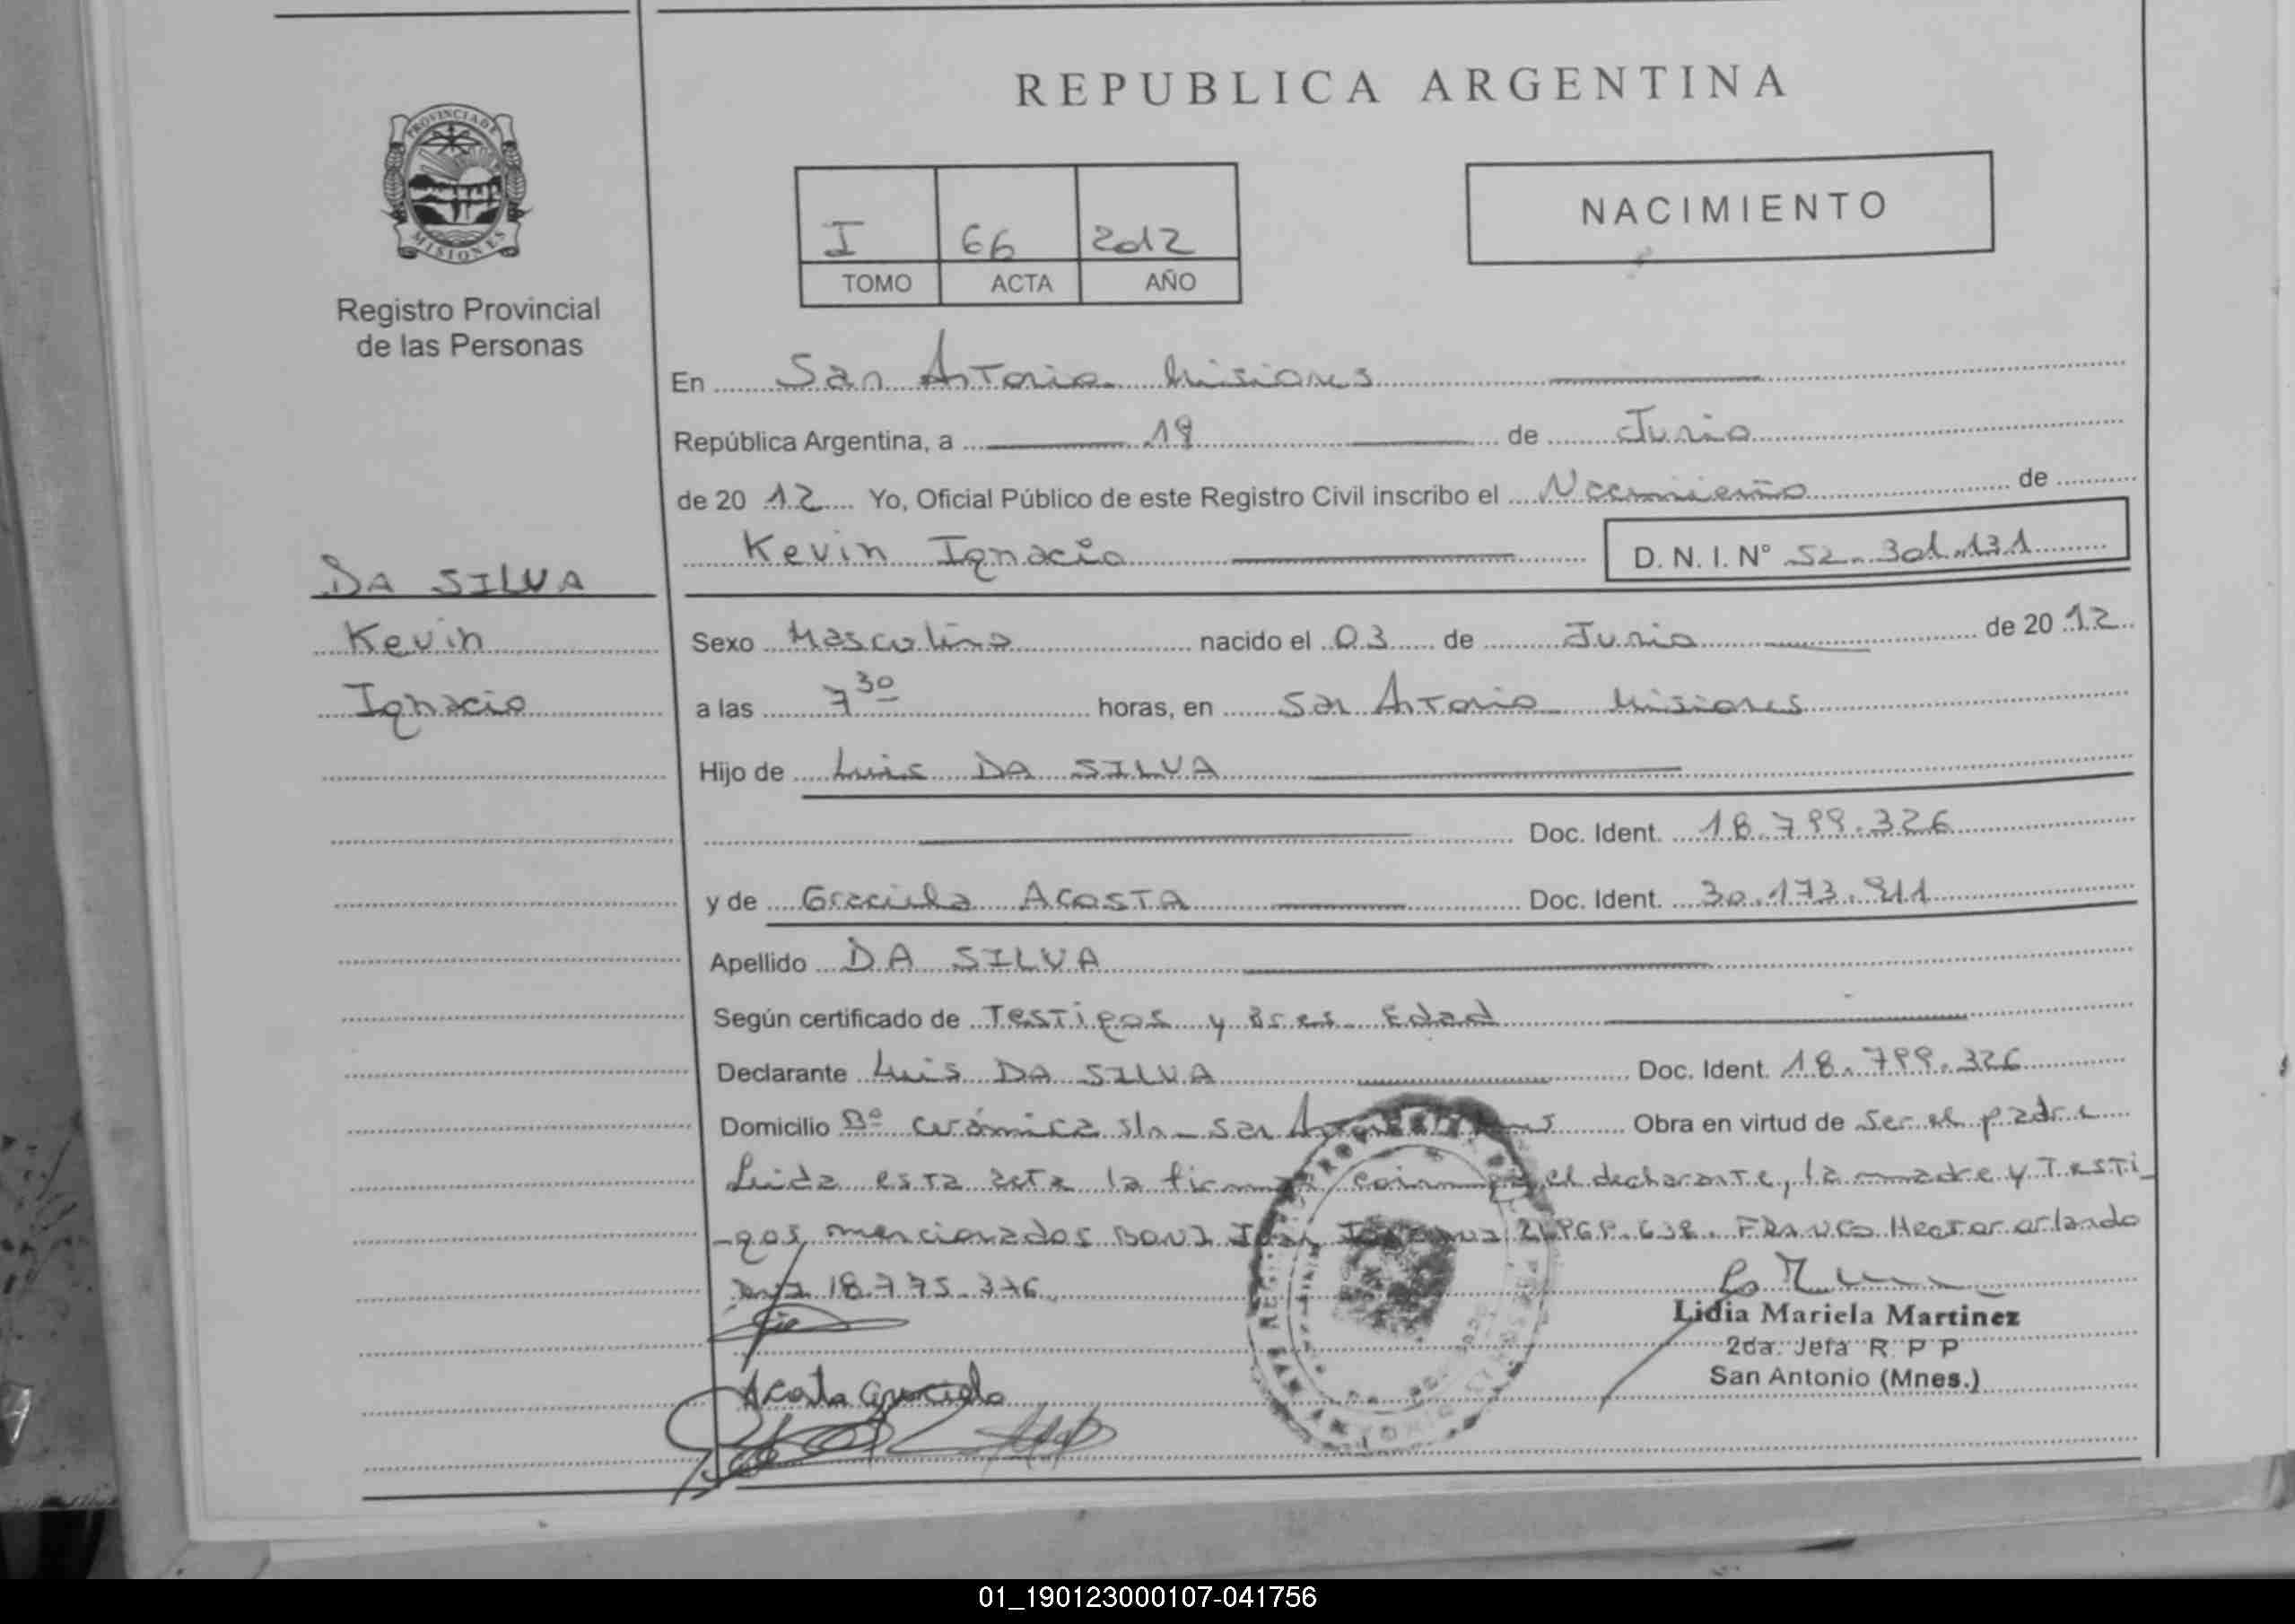 REPUBLICA ARGENTINA
PROVINCIA DE
MISIONES
Registro Provincial
de las Personas
I 66 2012
TOMO ACTA AÑO
NACIMIENTO
En San Antonio Misiones
República Argentina, a 19 de Junio
de 20 12 Yo, Oficial Público de este Registro Civil inscribo el Nacimiento de
Kevin Ignacio D. N. I. N° 52.301.131
DA SILVA
Kevin
Ignacio
Sexo Masculino nacido el 03 de Junio de 20 12
a las 7 30 horas, en San Antonio Misiones
Hijo de Luis DA SILVA
Doc. Ident. 18.799.326
y de Graciela ACOSTA Doc. Ident. 30.173.811
Apellido DA SILVA
Según certificado de Testigos y Edad
Declarante Luis DA SILVA Doc. Ident. 18.799.326
Domicilio Bº cerámica s/n - San Obra en virtud de Ser el padre
Leida esta acta la el declarante, la madre y Testi
-gos mencionados FRANCO Hector orlando
18.775.376
Acosta Graciela
Lidia Mariela Martinez
2da. Jefa R P P
San Antonio (Mnes.)
01_190123000107-041756